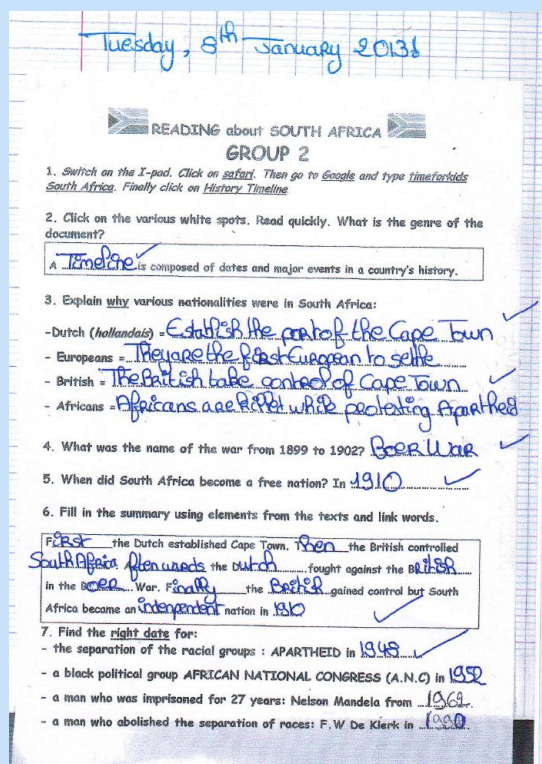 Tuesday, 8th January 2013
READING about SOUTH AFRICA
GROUP 2
1. Switch on the I-pad. Click on safari. Then go to Google and type timeforkids
South Africa. Finally click on History Timeline
2. Click on the various white spots. Read quickly. What is the genre of the
document?
A Timeline is composed of dates and major events in a country's history.
3. Explain why various nationalities were in South Africa:
-Dutch (hollandais) = Establish the port of the Cape Town
- Europeans = They are the first European to settle
- British = The British take control of Cape Town
- Africans = Africans are killet while protesting Apartheid
4. What was the name of the war from 1899 to 1902? Boer War
5. When did South Africa become a free nation? In 1910
6. Fill in the summary using elements from the texts and link words.
First the Dutch established Cape Town. Then the British controlled
South Africa. Afterwards the Dutch fought against the British
in the Boer War. Finally the British gained control but South
Africa became an independent nation in 1910
7. Find the right date for:
- the separation of the racial groups : APARTHEID in 1948
- a black political group AFRICAN NATIONAL CONGRESS (A.N.C) in 1952
- a man who was imprisoned for 27 years: Nelson Mandela from 1962.
- a man who abolished the separation of races: F.W De Klerk in 1990